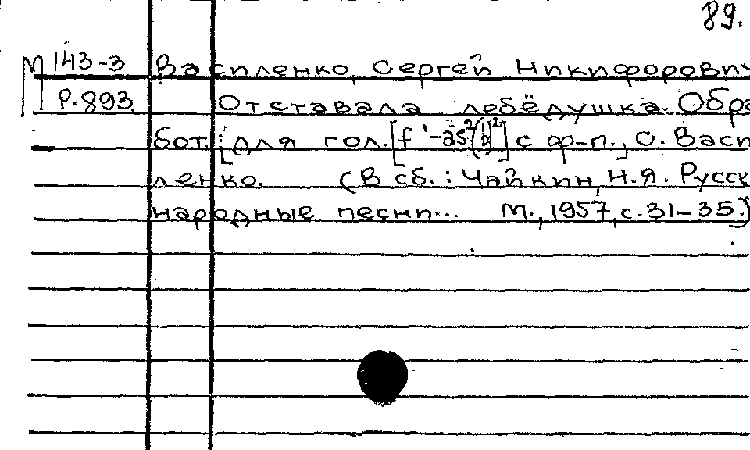 89.
М 143-3 Василенко, Сергей Никифорович
Р.893 Отставала лебёдушка. Обра
бот. [для гол. [f'-as²(b²)] с ф-п., С. Васи
ленко. (В сб.: Чайкин, Н.Я. Русск
народные песни... М., 1957, с. 31-35.)